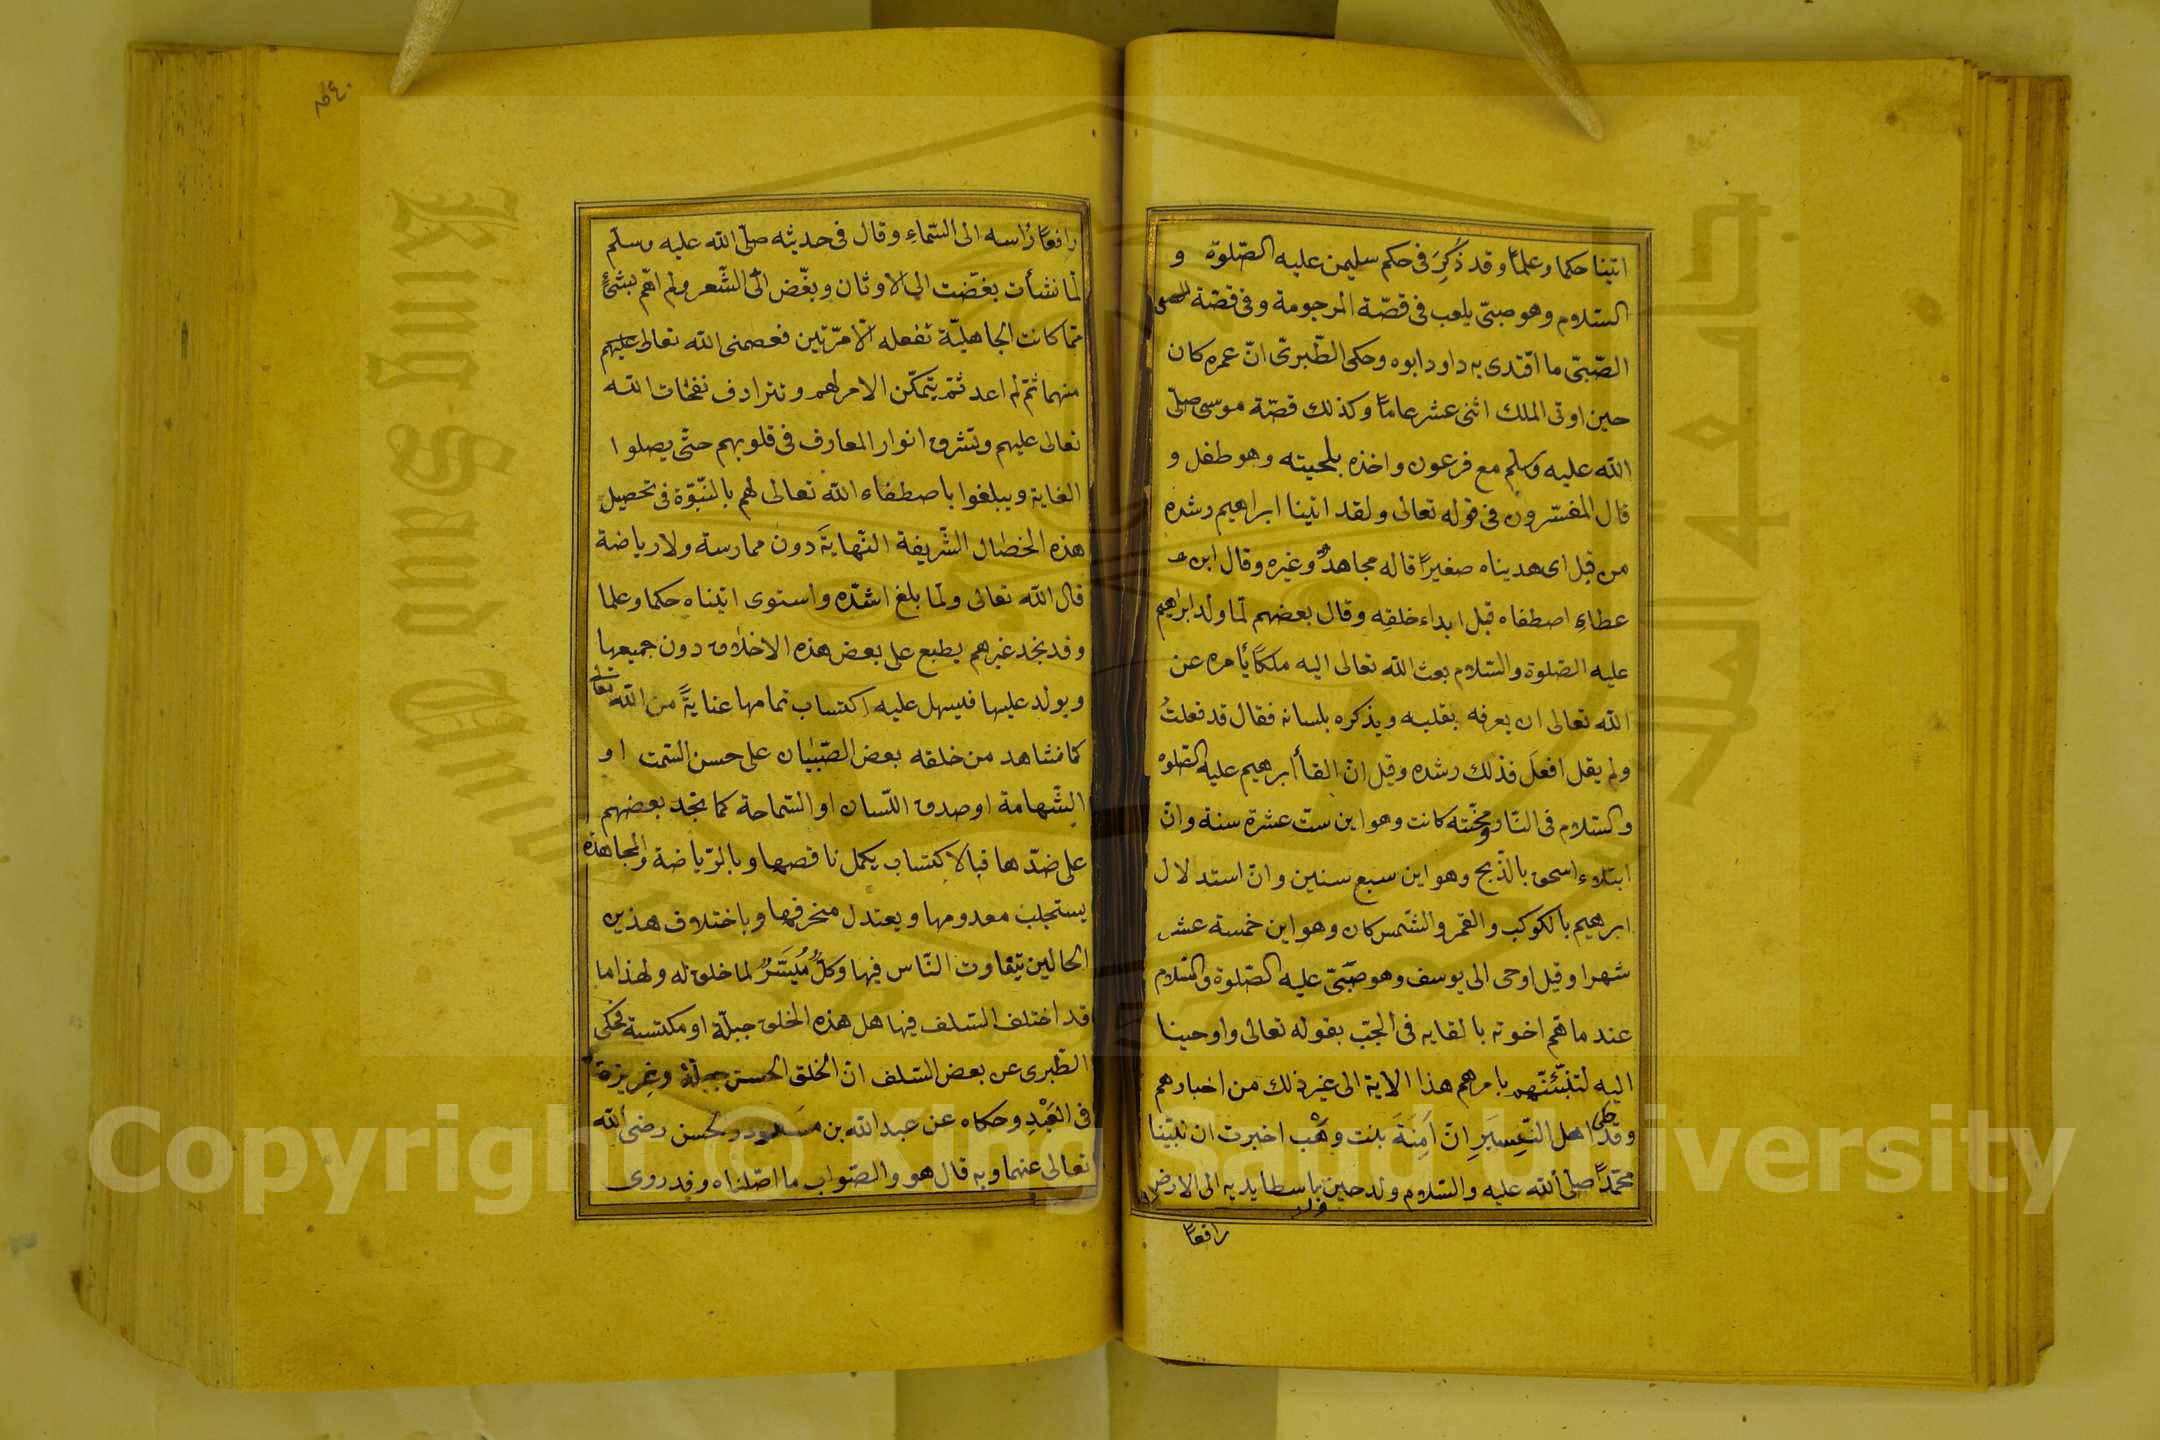 اتينا حكما وعلما وقد ذُكِرَ فى حكم سليمن عليه الصّلوة و
السّلام وهو صبىّ يلعب فى قصّة المرجومة وفى قصّة
الصّبىّ ما اقتدى به داود ابوه وحكى الطّبرىّ انّ عمره كان
حين اوتى الملك اثنى عشر عاماً وكذلك قصّة موسى صلّى
الله عليه وسلم مع فرعون واخذه بلحيته وهو طفل و
قال المفسّرون فى قوله تعالى ولقد اتينا ابراهيم رشده
من قبل اى هديناه صغيراً قاله مجاهدٌ وغيره وقال ابن
عطاءِ اصطفاه قبل ابداء خلقِه وقال بعضهم لمّا ولد ابراهيم
عليه الصّلوة والسّلام بعث الله تعالى اليه ملكاً يأمره عن
الله تعالى ان يعرفه بقلبه ويذكره بلسانه فقال قد فعلتُ
ولم يقل افعلَ فذلك رشده وقيل انّ القأ ابرهيم عليه الصّلوة
والسّلام فى النّار ومحنته كانت وهو ابن ستّ عشرة سنة وانّ
ابتلاء اسحق بالذّبح وهو ابن سبع سنين وانّ استدلال
ابرهيم بالكوكب والقمر والشّمس كان وهو ابن خمسة عشر
شهرا وقيل اوحى الى يوسف وهو صبّىّ عليه الصّلوة والسّلام
عند ما همّ اخوته بالقايه فى الجبّ بقوله تعالى واوحينا
اليه لتنبّئنّهم بامرهم هذا الاية الى غير ذلك من اخبارهم
وقد حكى اهل التّفسِيَرِ انّ اَمِنَةَ بنت وهْب اخبرت ان نبيّنا
محمّداً صلّى الله عليه والسّلام ولد حين ولد باسطا يديه الى الارض
رافعاً
رافعاً رأسه الى السّماءِ وقال فى حديثه صلّى الله عليه وسلّم
لمّا نشأت بغّضت الى الاوثان وبغّض الىّ الشّعر ولم اهّم بشئٍ
ممّا كانت الجاهليّة تفعله الّا مرّتين فعصمنى الله تعالى عليهم
منهما ثمّ لم اعد ثمّ يتمكّن الامر لهم وتترادف نفحات الله
تعالى عليهم وتشرق انوار المعارف فى قلوبهم حتّى يصلوا
الغاية ويبلغوا باصطفاء الله تعالى لهم بالنّبوّة فى تحصيل
هذه الخصال الشّريفة النّهايةَ دون ممارسة ولا رياضة
قال الله تعالى ولمّا بلغ اشدّه واستوى اتيناه حكما وعلما
وقد نجد غيرهم يطبع على بعض هذه الاخلاق دون جميعها
ويولد عليها فيسهل عليه اكتساب تمامها عنايةً من الله تعالى
كما نشاهد من خلقه بعض الصّبيان على حسن السّمت او
الشّهامة او صدق اللّسان او السّماحة كما نجد بعضهم
على ضدّها فبالاكتساب يكمل ناقصها وبالرّياضة والمجاهدة
يستجلب معدومها ويعتدل منحرفها وباختلاف هذين
الحالين يتفاوت النّاس فيها وكلٌّ مُيَسَّرٌ لما خلق له ولهذا ما
قد اختلف السّلف فيها هل هذه الخلق جبلّة او مكتسبة فحكى
الطّبرى عن بعض السّلف انّ الخلق الحسن جبلّة وغريزة
فى العَبْدِ وحكاه عن عبد الله بن مسعود والحسن رضى الله
تعالى عنهما وبه قال هو والصّواب ما اصّلناه وقد روى
Copyright © King Saud University
King Saud University
جامعة الملك سعود